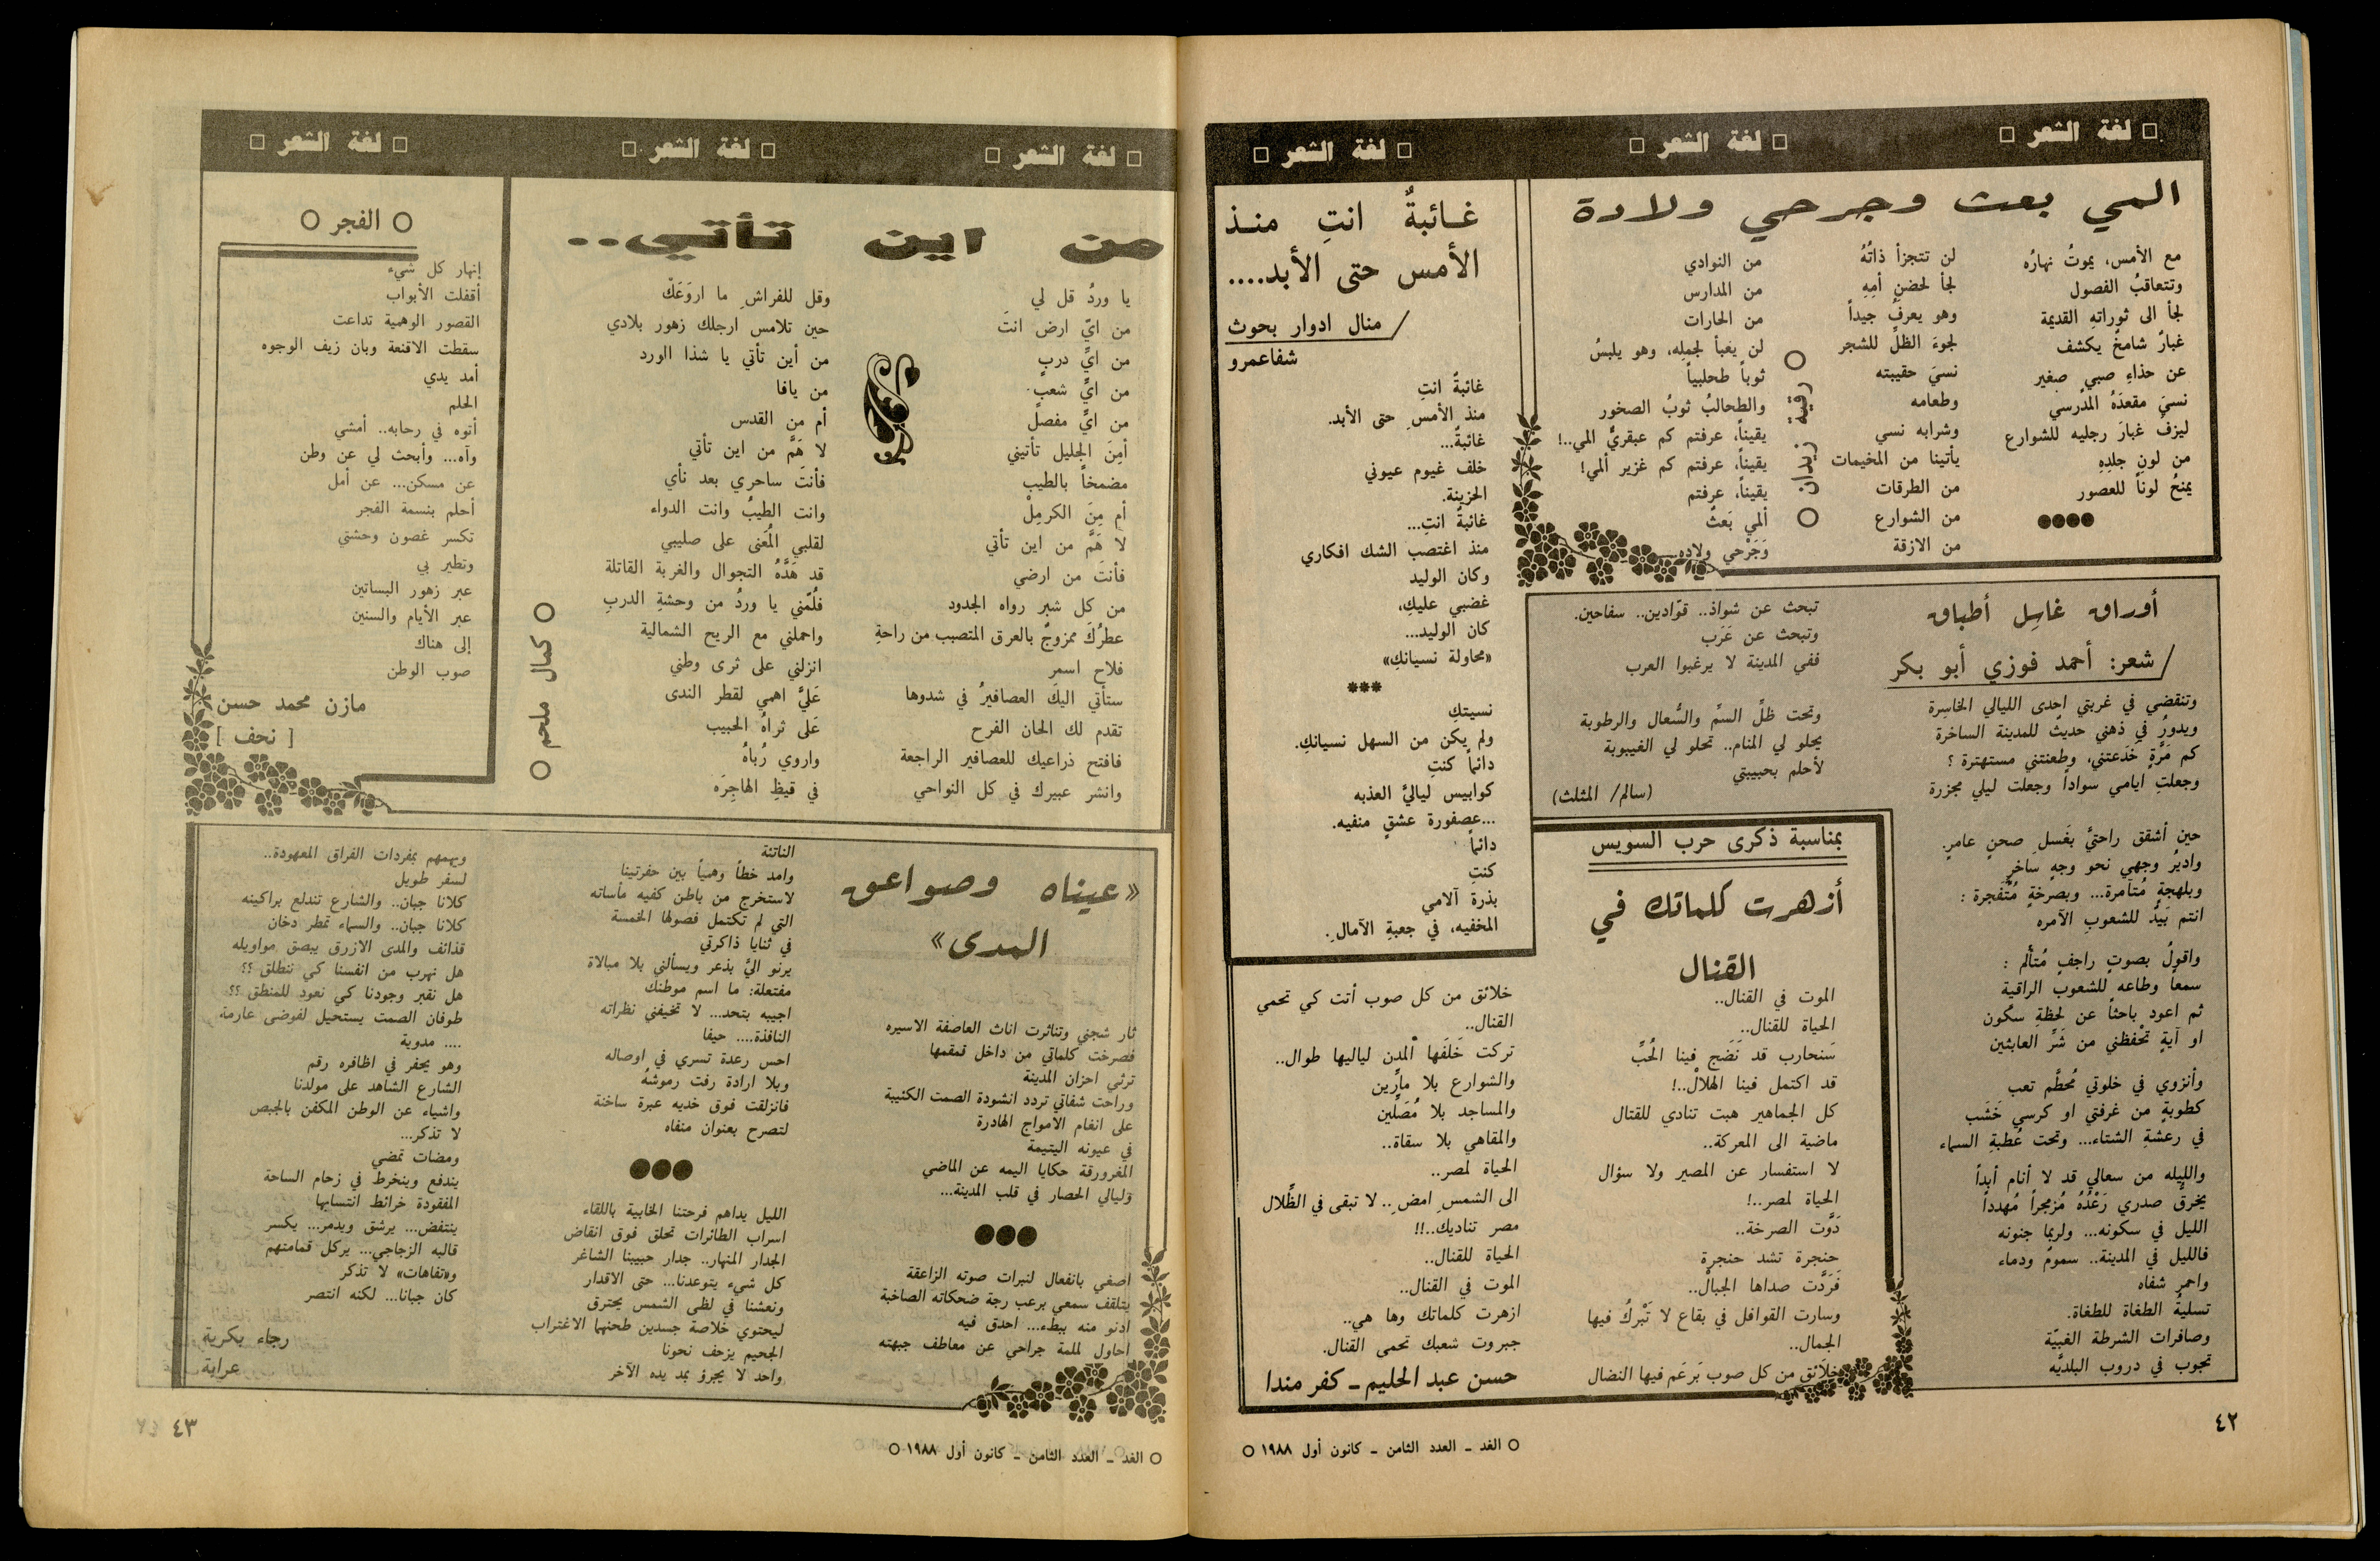 □ لغة الشعر □
□ لغة الشعر □
□ لغة الشعر □
المي بعث وجرحي ولادة
مع الأمس، يموتُ نهارُه
وتتعاقبُ الفصول
لجأ الى ثوراتهِ القديمة
غبارٌ شامخٌ يكشف
عن حذاءِ صبيٍ صغير
نسيَ مقعدَهُ المدرسي
ليزفَ غبارَ رجليه للشوارع
من لونِ جلدِهِ
يمنحُ لوناً للعصور
لن تتجزأ ذاتُهُ
لجأ لحضنِ أمِهِ
وهو يعرفُ جيداً
لجوءَ الظلِّ للشجر
نسيَ حقيبته
وطعامه
وشرابه نسي
يأتينا من المخيمات
من الطرقات
من الشوارع
من الازقة
من النوادي
من المدارس
من الحارات
لن يَعبأ لجملِه، وهو يلبسُ
ثوباً طحلبياً
والطحالبُ ثوبُ الصخور
يقيناً، عرفتم كم عبقريٌّ المي..!
يقيناً، عرفتم كم غزير ألمي!
يقيناً، عرفتم
ألمي بَعثٌ
وَجَرْحي ولاده
○ رقية زيدان ○
غائبةٌ انتِ منذ
الأمس حتى الأبد....
/ منال ادوار بحوث
شفاعمرو
غائبةٌ انتِ
منذ الأمسِ حتى الأبد.
غائبةٌ...
خلف غيوم عيوني
الحزينة.
غائبةٌ انتِ...
منذ اغتصب الشك افكاري
وكان الوليد
غضبي عليكِ،
كان الوليد...
«محاولة نسيانكِ»
***
نسيتكِ
ولم يكن من السهل نسيانكِ.
دائماً كنتِ
كوابيس لياليَّ العذبه
...عصفورة عشقٍ منفيه.
دائماً
كنتِ
بذرة آلامي
المخفيه، في جعبةِ الآمالِ.
أوراق غاسِل أطباق
/ شعر: أحمد فوزي أبو بكر
وتنقضي في غربتي احدى الليالي الخاسِرة
ويدورُ في ذهني حديثٌ للمدينة الساخرَة
كم مَرَّةٍ خَدَعتني، وطعنتني مستهترة ؟
وجعلتِ ايامي سواداً وجعلت ليلي مجزرة
حين أشقق راحتيَّ بغَسلِ صحنٍ عامرٍ.
واديرُ وجهي نحو وجهٍ ساخرٍ
وبلهجةٍ مُتآمرة... وبصرخةٍ مُتَّفجرة :
انتم بَيدٌ للشعوب الآمره
واقولُ بصوتٍ راجفٍ مُتألم :
سمعاً وطاعه للشعوب الراقية
ثم اعود باحثاً عن لحظةِ سكون
او آيةٍ تحْفظني من شَرَّ العابثين
وأنزوي في خلوتي مُحطَّم تعب
كطوبةٍ من غرفتي او كرسي خَشَب
في رعشةِ الشتاء... وتحت عُطبةِ السماء
والليله من سعالي قد لا أنام أبداً
يخرقُ صدري رَعْدُهُ مُزمجراً مُهدداً
الليل في سكونه... ولربما جنونه
فالليل في المدينة.. سموم ودماء
واحمر شفاه
تسليةُ الطغاة للطغاة.
وصافرات الشرطة الغبيّة
تجوب في دروب البلديَّه
تبحث عن شواذ.. قوّادين.. سفاحين.
وتبحث عن عَرَب
ففي المدينة لا يرغبوا العرب
وتحت ظلِّ السمِّ والسُّعال والرطوبة
يحلو لي المنام.. تحلو لي الغيبوبة
لأحلم بحبيبتي
(سالم/ المثلث)
بمناسبة ذكرى حرب السويس
أزهرت كلماتك في
القنال
الموت في القنال..
الحياة للقنال..
سَنحارب قد نَضَج فينا الحُبِّ
قد اكتمل فينا الهلالْ..!
كل الجماهير هبت تنادي للقتال
ماضية الى المعركة..
لا استفسار عن المصير ولا سؤال
الحياة لمصر..!
دَوَّت الصرخة..
حنجرة تشد حنجرة
فَرَدَّت صداها الجبالْ..
وسارت القوافل في بقاع لا تَبْركُ فيها
الجمال..
خلائق من كل صوب بَرَعَم فيها النضال
خلائق من كل صوب أتت كي تحمي
القنال..
تركت خَلَفَها المدن لياليها طوال..
والشوارع بلا مارِّين
والمساجد بلا مُصَلِّين
والمقاهي بلا سقاة..
الحياة لمصر..
الى الشمسِ امضِ.. لا تبقى في الظِّلال
مصر تناديك..!!
الحياة للقنال..
الموت في القنال..
ازهرت كلماتك وها هي..
جبروت شعبك تحمى القنال.
حسن عبد الحليم ــ كفر مندا
٤٢
○ الغد ــ العدد الثامن ــ كانون أول ١٩٨٨ ○
□ لغة الشعر □
□ لغة الشعر □
□ لغة الشعر □
من اين تأتي..
يا وردُ قل لي
من ايِّ ارض انتَ
من ايِّ دربٍ
من ايِّ شعبٍ
من ايِّ مفصلٍ
أمِنَ الجليل تأتيني
مضمخاً بالطيب
أم مِنَ الكرمِلْ
لا هَمَّ من اين تأتي
فأنتَ من ارضي
من كل شبرٍ رواه الجدود
عطرُكَ ممزوجٌ بالعرق المتصبب من راحةِ
فلاح اسمر
ستأتي اليكَ العصافيرُ في شدوها
تقدم لك الحان الفرح
فافتح ذراعيك للعصافير الراجعة
وانشر عبيرك في كل النواحي
وقل للفراشِ ما اروَعَكْ
حين تلامس ارجلك زهور بلادي
من أين تأتي يا شذا الورد
من يافا
أم من القدس
لا هَمَّ من اين تأتي
فأنتَ ساحري بعد نأي
وانت الطيبُ وانت الدواء
لقلبي المُعَنى على صليبي
قد هَدَّهُ التجوال والغربة القاتلة
فَلُمّني يا وردُ من وحشةِ الدربِ
واحملني مع الريح الشمالية
انزلني على ثرى وطني
عَليَّ اهمي لقطر الندى
عَلى ثراهُ الحبيب
واروي رُباهْ
في قيظِ الهاجِرَه
○ كمال ملحم ○
○ الفجر ○
إنهار كل شيء
أقفلت الأبواب
القصور الوهمية تداعت
سقطت الاقنعة وبان زيف الوجوه
أمد يدي
الحلم
أتوه في رحابه.. أمشي
وآه... وأبحث لي عن وطن
عن مسكن... عن أمل
أحلم بنسمة الفجر
تكسر غصون وحشتي
وتطير بي
عبر زهور البساتين
عبر الأيام والسنين
إلى هناك
صوب الوطن
مازن محمد حسن
[ نحف ]
«عيناه وصواعق
المدى»
ثار شجني وتناثرت اناث العاصفة الاسيره
فصرخت كلماتي من داخل قمقمها
ترثي احزان المدينة
وراحت شفاتي تردد انشودة الصمت الكئيبة
على انغام الأمواج الهادرة
في عيونه اليتيمة
المغرورقة حكايا اليمه عن الماضي
وَليالي الحصار في قلب المدينة...
اصغي بانفعال لنبرات صوته الزاعقة
يتلقف سمعي برعب رجة ضحكاته الصاخبة
ادنو منه ببطء... احدق فيه
احاول لملمة جراحي عن معاطف جبهته
الناتئة
وامد خطاً وهمياً بين حفرتينا
لاستخرج من باطن كفيه مأساته
التي لم تكتمل فصولها الخمسة
في ثنايا ذاكرتي
يرنو اليَّ بذعر ويسألني بلا مبالاة
مفتعلة: ما اسم موطنك
اجيبه بتحد... لا تخيفني نظراته
النافذة.... حيفا
احس رعدة تسري في اوصاله
وبلا ارادة رفت رموشهُ
فانزلقت فوق خديه عبرة ساخنة
لتصرح بعنوان منفاه
الليل يداهم فرحتنا الخابية باللقاء
اسراب الطائرات تحلق فوق انقاض
الجدار المنهار.. جدار حبيبنا الشاغر
كل شيء يتوعدنا... حتى الاقدار
ونعشنا في لظى الشمس يحترق
ليحتوي خلاصة جسدين طحنهما الاغتراب
الجحيم يزحف نحونا
واحد لا يجرؤ بمد يده الآخر
ويهمهم بمفردات الفراق المعهودة..
لسفر طويل
كلانا جبان.. والشارع تندلع براكينه
كلانا جبان.. والسماء تمطر دخان
قذائف والمدى الازرق يبصق مواويله
هل نهرب من انفسنا كي ننطلق ؟؟
هل نقبر وجودنا كي نعود للمنطق ؟؟
طوفان الصمت يستحيل لفوضى عارمة
.... مدوية
وهو يحفر في اظافره رقم
الشارع الشاهد على مولدنا
واشياء عن الوطن المكفن بالجبص
لا تذكر...
ومضات تمضي
يندفع وينخرط في زحام الساحة
المفقودة خرائط انتسابها
ينتفض... يرشق ويدمر... يكسر
قالبه الزجاجي... يركل قمامتهم
و«تفاهات» لا تذكر
كان جبانا... لكنه انتصر
رجاء بكرية
عرابة
٤٣
○ الغد ــ العدد الثامن ــ كانون أول ١٩٨٨ ○